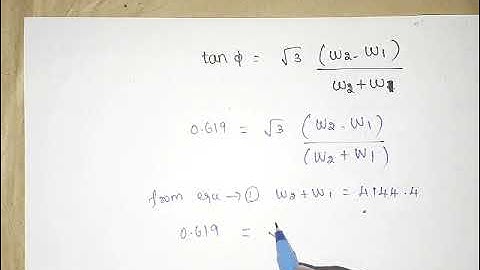 tan φ = √3 (W2 - W1) / W2 + W1
0.619 = √3 (W2 - W1) / (W2 + W1)
from equ → ① W2 + W1 = 4144.4
0.619 =